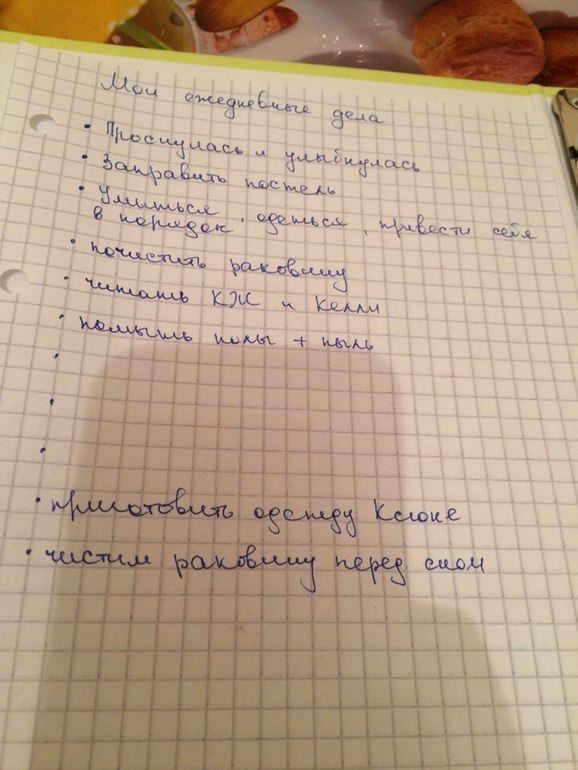 Мои ежедневные дела
• Проснулась и улыбнулась
• Заправить постель
• Умыться, одеться, привести себя
в порядок
• почистить раковину
• читать КЖ и Келли
• помыть полы + пыль
•
•
•
• приготовить одежду Ксюне
• чистим раковину перед сном